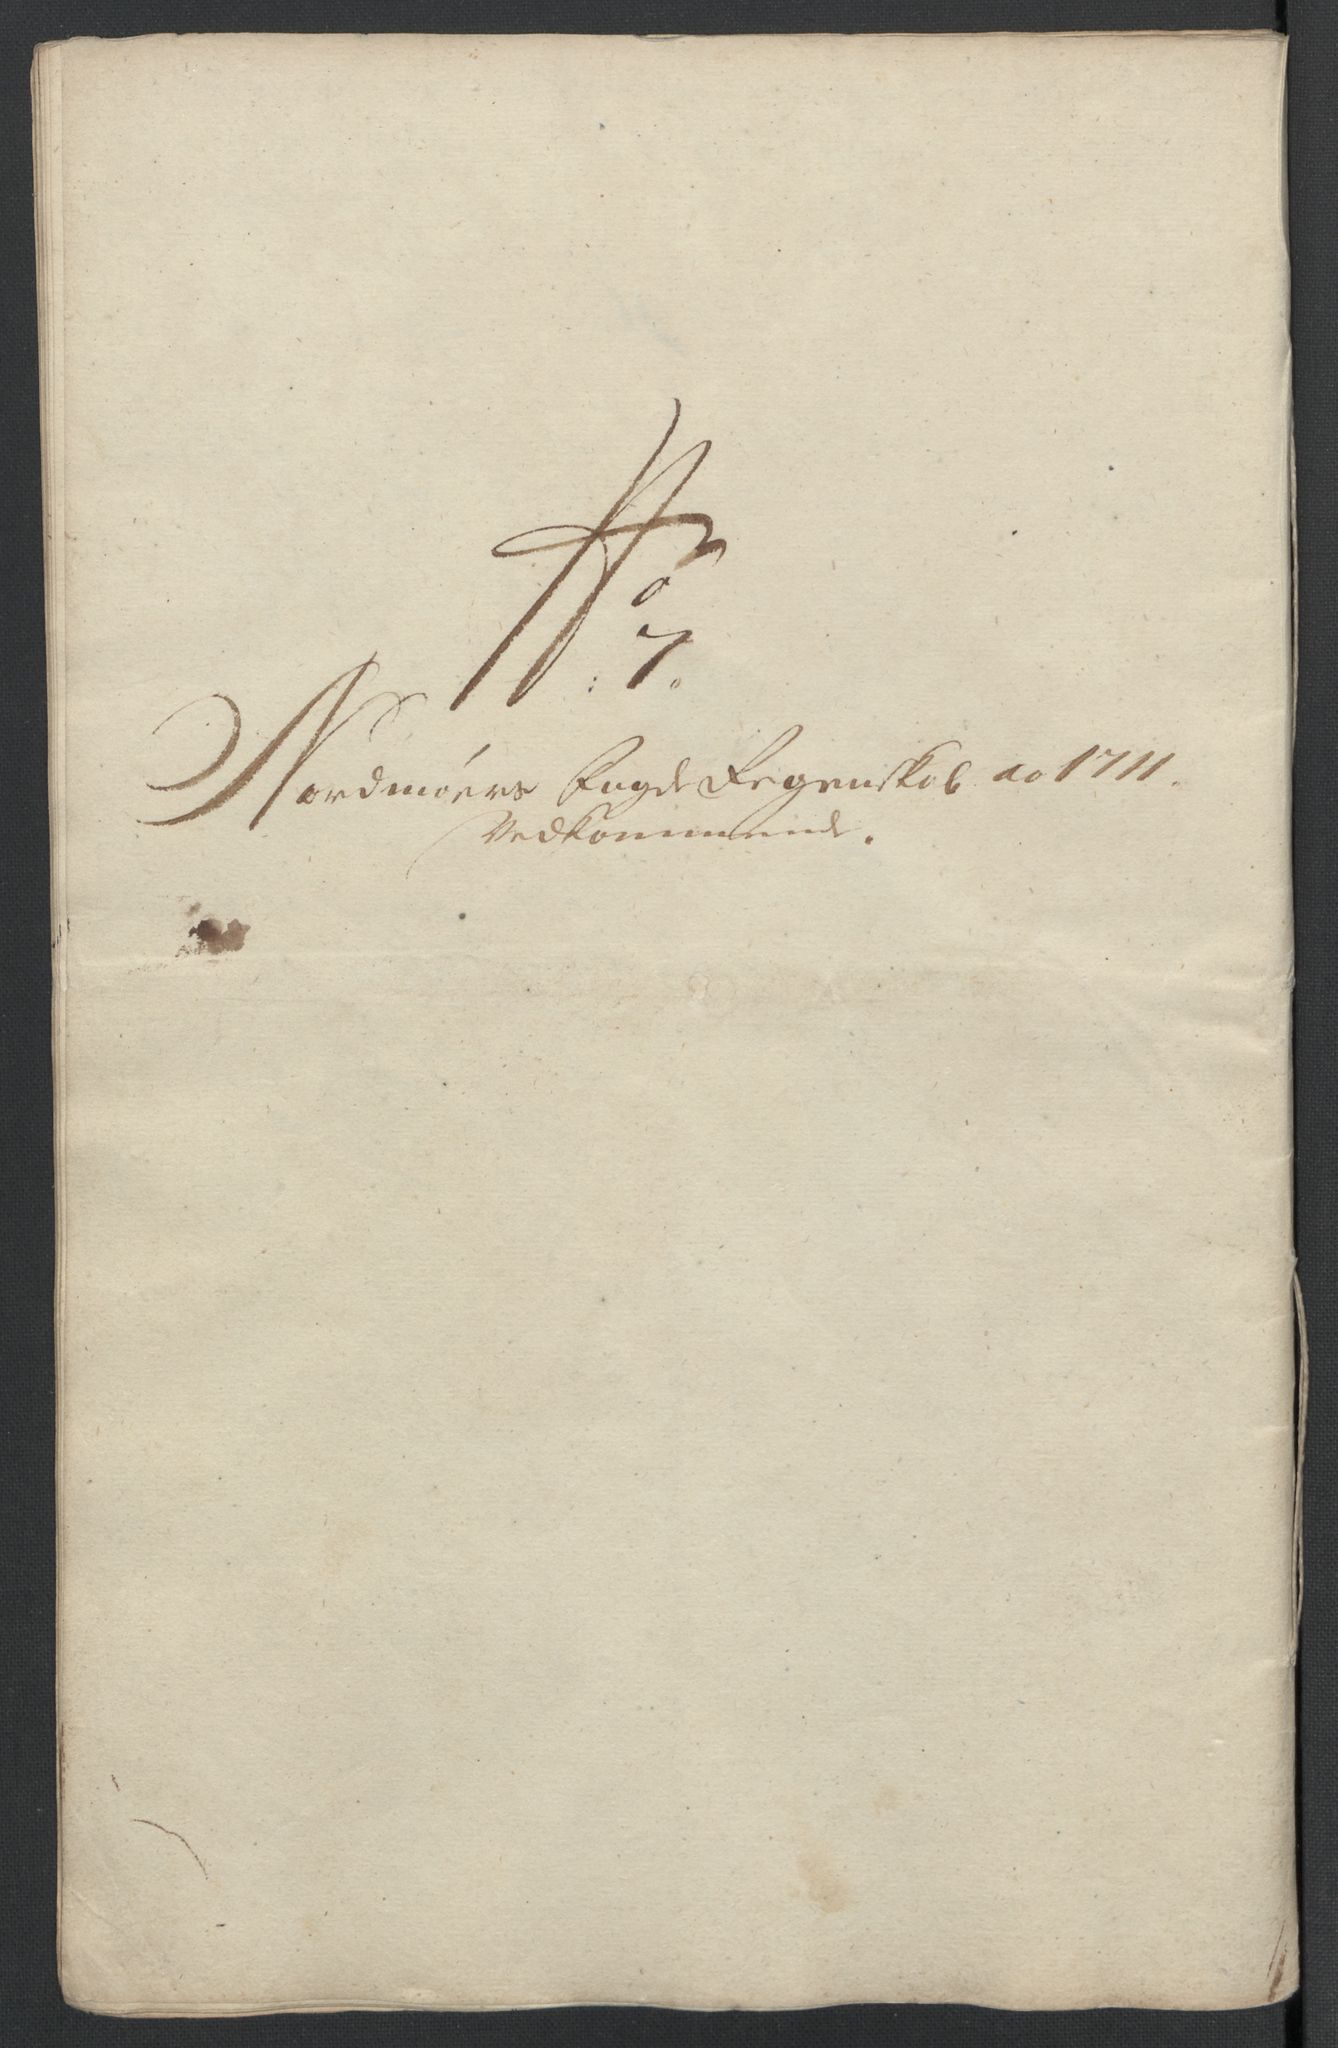 No
: 7.
Nordmøers Fogde Regenskab ao 1711.
Vedkommende.